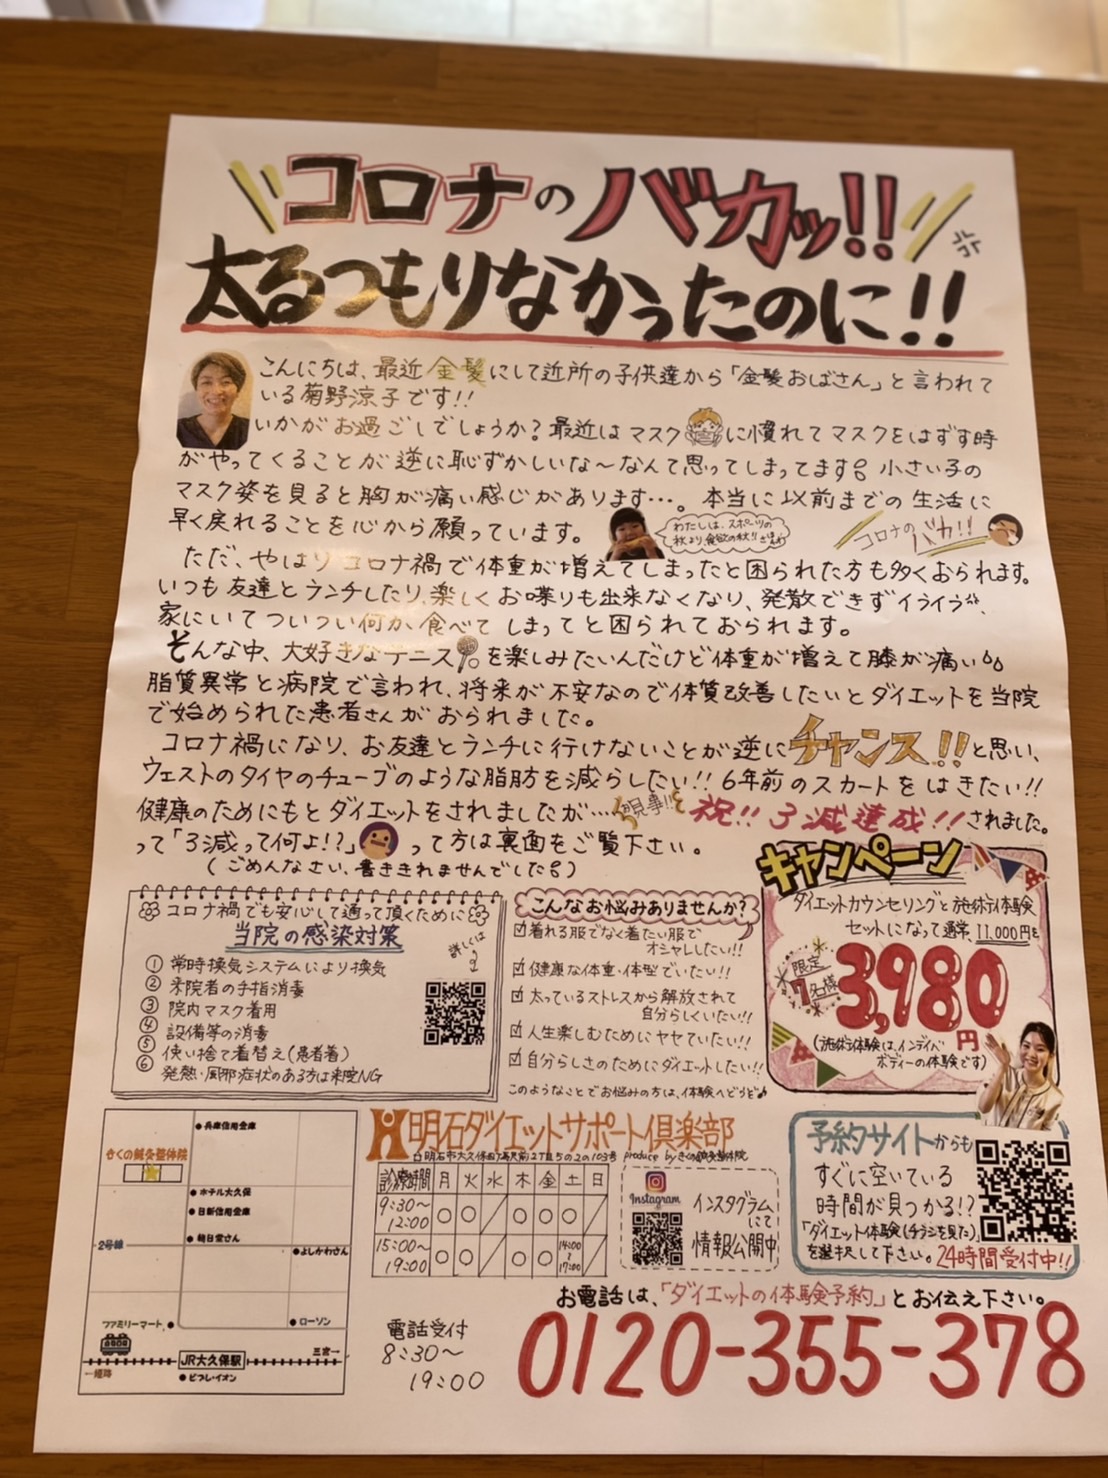 コロナのバカッ!!
太るつもりなかったのに!!
こんにちは、最近金髪にして近所の子供達から「金髪おばさん」と言われて
いる菊野涼子です!!
いかがお過ごしでしょうか?最近はマスクに慣れてマスクをはずす時
がやってくることが逆に恥ずかしいな〜なんて思ってしまってます。小さい子の
マスク姿を見ると胸が痛い感じがあります…。本当に以前までの生活に
早く戻れることを心から願っています。
わたしは、スポーツの
秋より、食欲の秋!!
コロナのバカ!!
ただ、やはりコロナ禍で体重が増えてしまったと困られた方も多くおられます。
いつも友達とランチしたり、楽しくお喋りも出来なくなり、発散できずイライラ、
家にいてついつい何か食べてしまってと困られておられます。
そんな中、大好きなテニスを楽しみたいんだけど体重が増えて膝が痛い
脂質異常と病院で言われ、将来が不安なので体質改善したいとダイエットを当院
で始められた患者さんがおられました。
コロナ禍になり、お友達とランチに行けないことが逆にチャンス!!と思い、
ウエストのタイヤのチューブのような脂肪を減らしたい!!6年前のスカートをはきたい!!
健康のためにもとダイエットをされましたが…見事!!祝!!3減達成!!されました。
って「3減って何よ!?」って方は裏面をご覧下さい。
(ごめんなさい、書ききれませんでした)
コロナ禍でも安心して通って頂くために
当院の感染対策
詳しくは
① 常時換気システムにより換気
② 来院者の手指消毒
③ 院内マスク着用
④ 設備等の消毒
⑤ 使い捨て着替え(患者着)
⑥ 発熱・風邪症状のある方は来院NG
こんなお悩みありませんか?
着れる服でなく着たい服で
オシャレしたい!!
健康な体重・体型でいたい!!
太っているストレスから解放されて
自分らしくいたい!!
人生楽しむためにヤセていたい!!
自分らしさのためにダイエットしたい!!
このようなことでお悩みの方は、体験へどうぞ♪
キャンペーン
ダイエットカウンセリングと施術体験
セットになって通常、11,000円を
限定
7名様
3,980円
(施術体験は、インディバ
ボディーの体験です)
兵庫信用金庫
きくの鍼灸整体院
ホテル大久保
日新信用金庫
朝日堂さん
2号線
よしかわさん
ファミリーマート
ローソン
三宮→
JR大久保駅
←姫路
ビブレ・イオン
明石ダイエットサポート倶楽部
明石市大久保町駅前2丁目5の2の103号 produce by きくの鍼灸整体院
診療時間 月 火 水 木 金 土 日
9:30〜12:00 ○ ○ / ○ ○ ○ /
15:00〜19:00 ○ ○ / ○ ○ 14:00〜17:00 /
Instagram
インスタグラム
にて
情報公開中
予約サイトからも
すぐに空いている
時間が見つかる!?
「ダイエット体験(チラシを見た)」
を選択して下さい。24時間受付中!!
お電話は、「ダイエットの体験予約」とお伝え下さい。
電話受付
8:30〜
19:00
0120-355-378